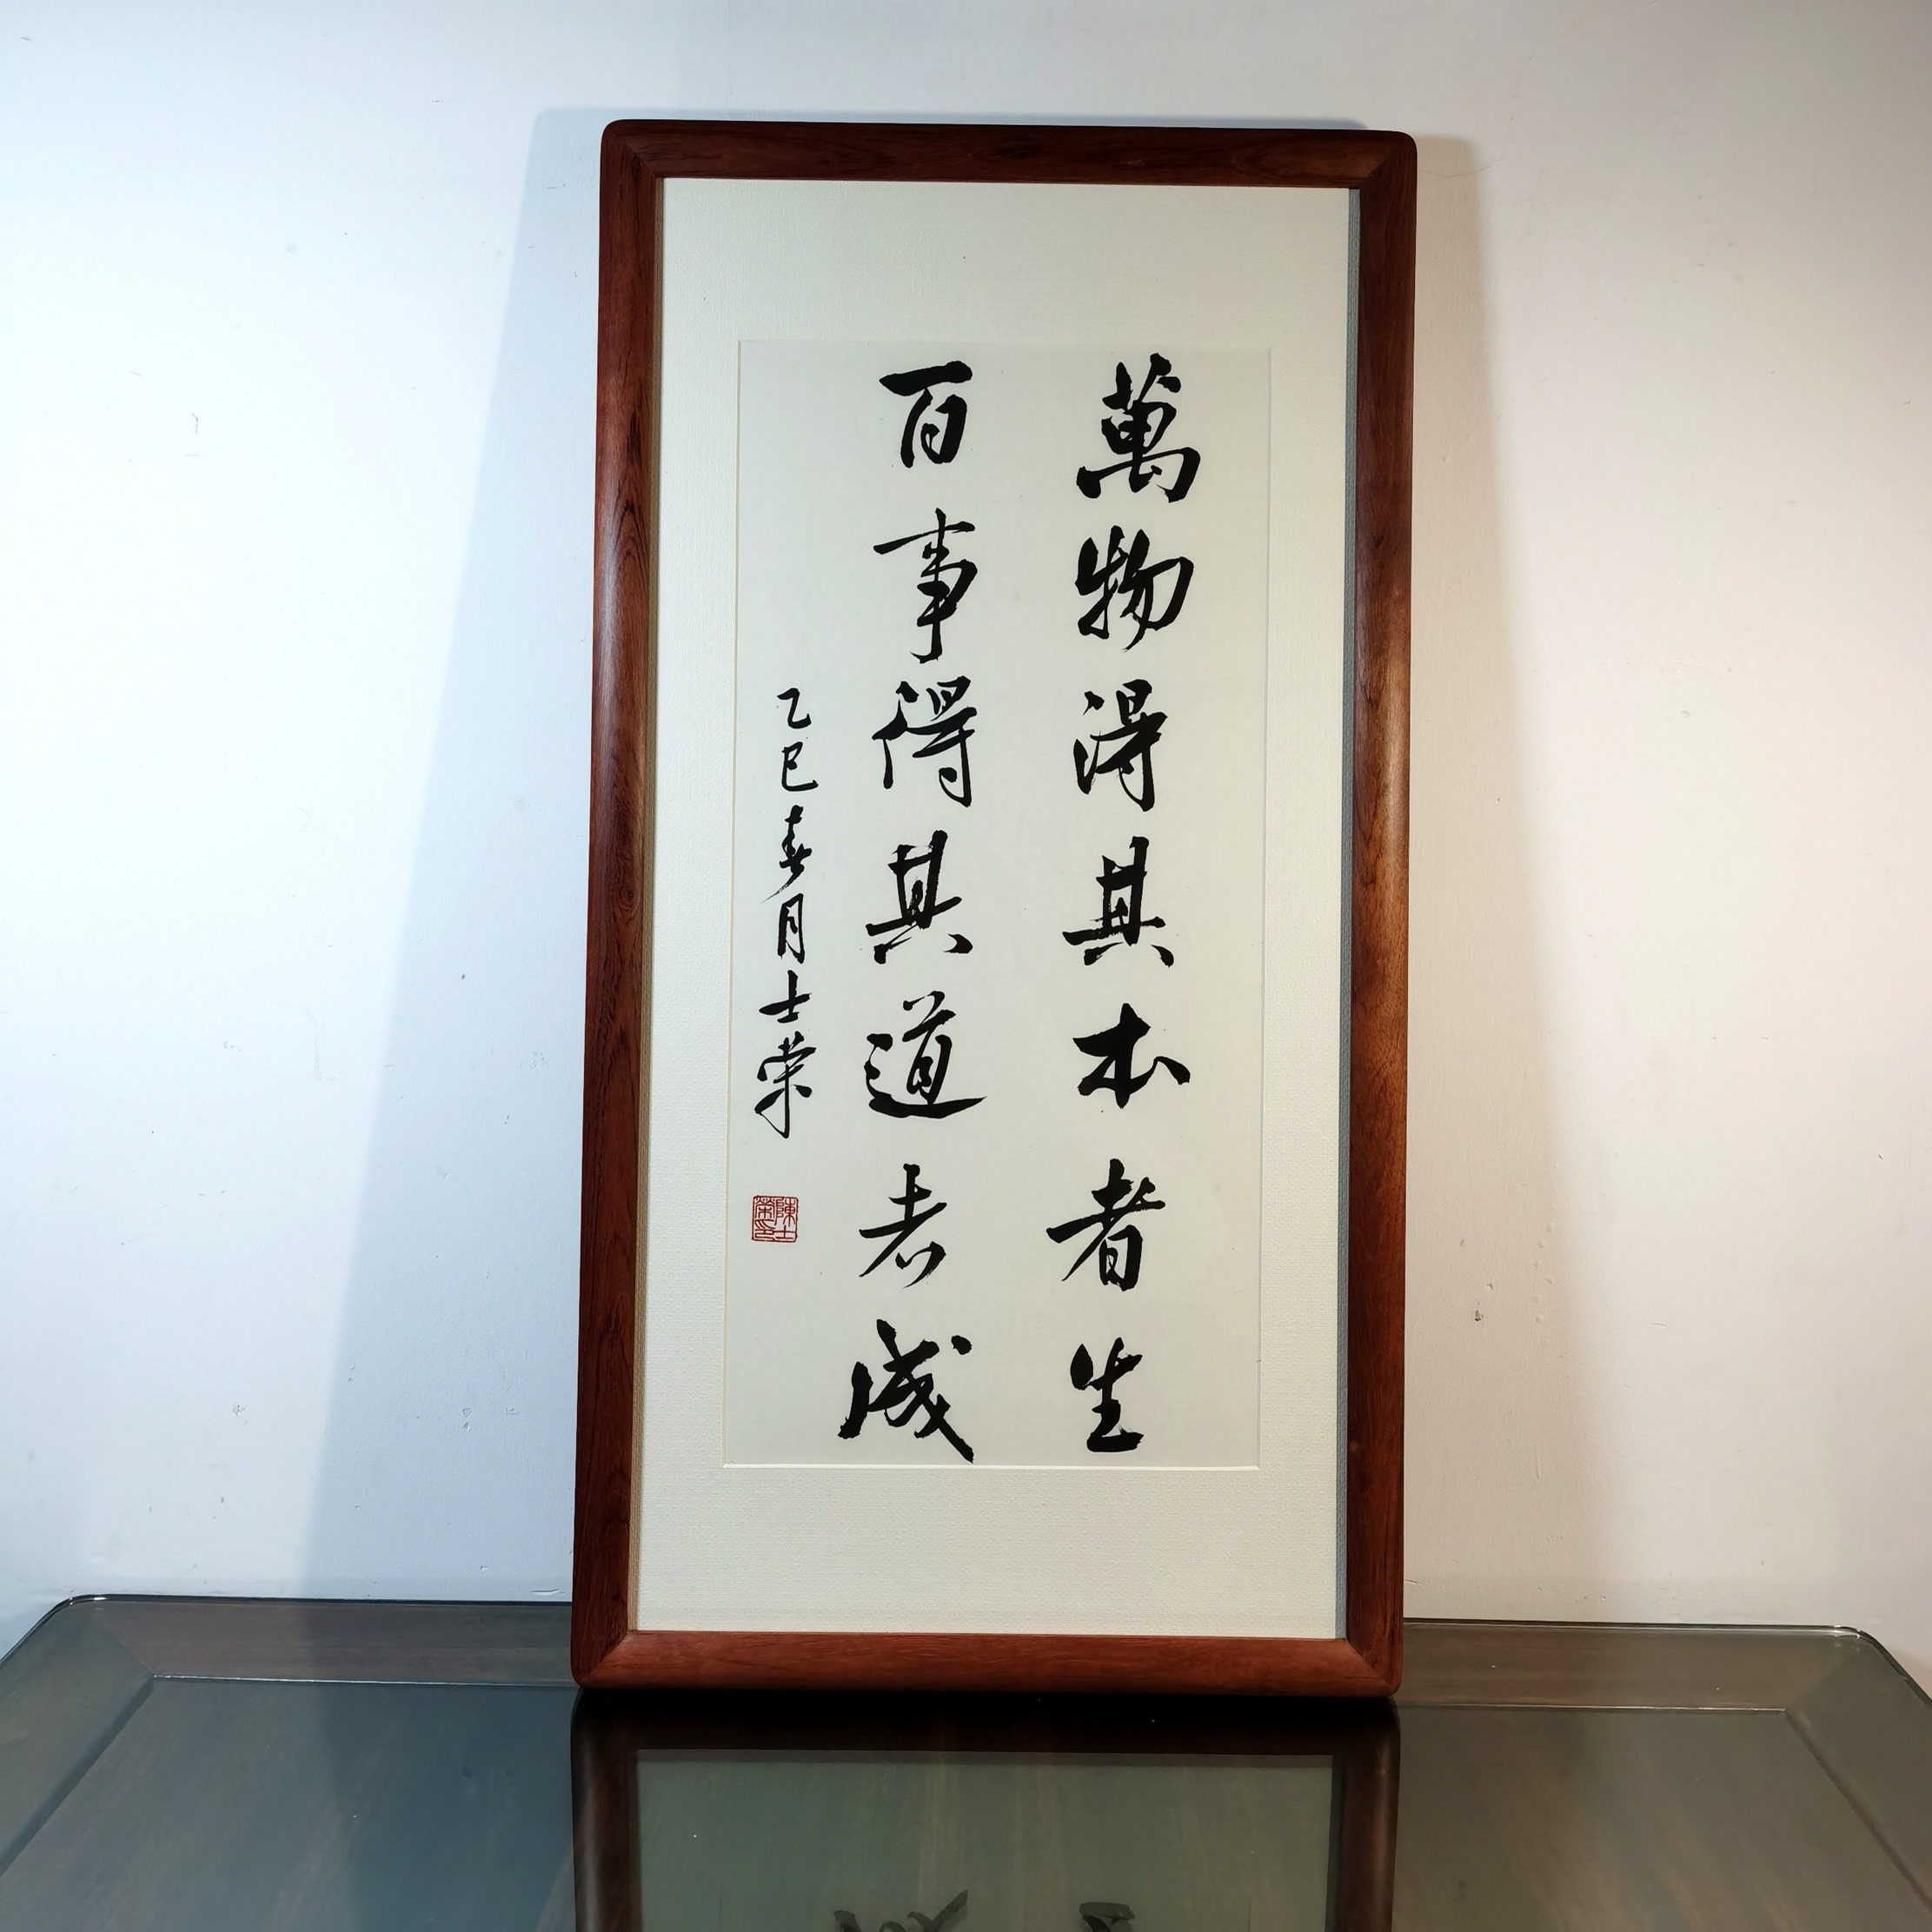 萬物得其本者生
百事得其道者成
乙巳春月士荣
陳士榮印